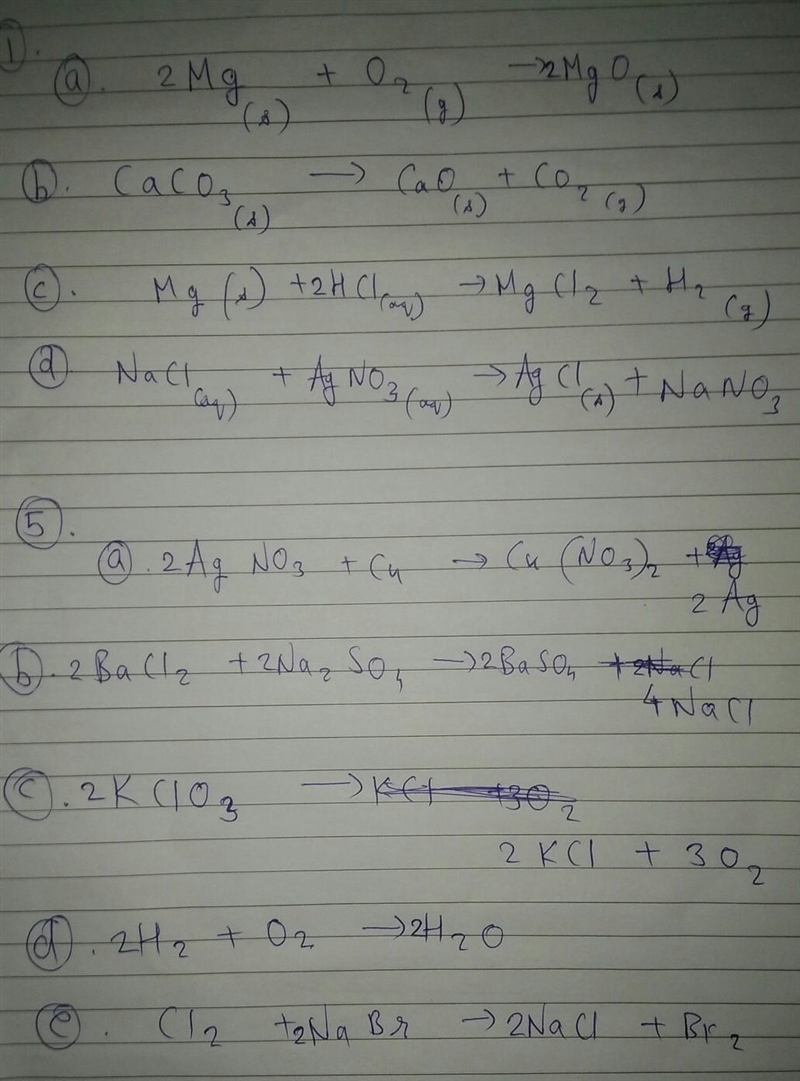 1.
a. 2Mg(s) + O2(g) → 2MgO(s)
b. CaCO3(s) → CaO(s) + CO2(g)
c. Mg(s) + 2HCl(aq) → MgCl2 + H2(g)
d NaCl(aq) + AgNO3(aq) → AgCl(s) + NaNO3
5.
a. 2AgNO3 + Cu → Cu(NO3)2 + Ag
2Ag
b. 2BaCl2 + 2Na2SO4 → 2BaSO4 + 2NaCl
4NaCl
c. 2KClO3 → KCl + 3O2
2KCl + 3O2
d. 2H2 + O2 → 2H2O
e. Cl2 + 2NaBr → 2NaCl + Br2